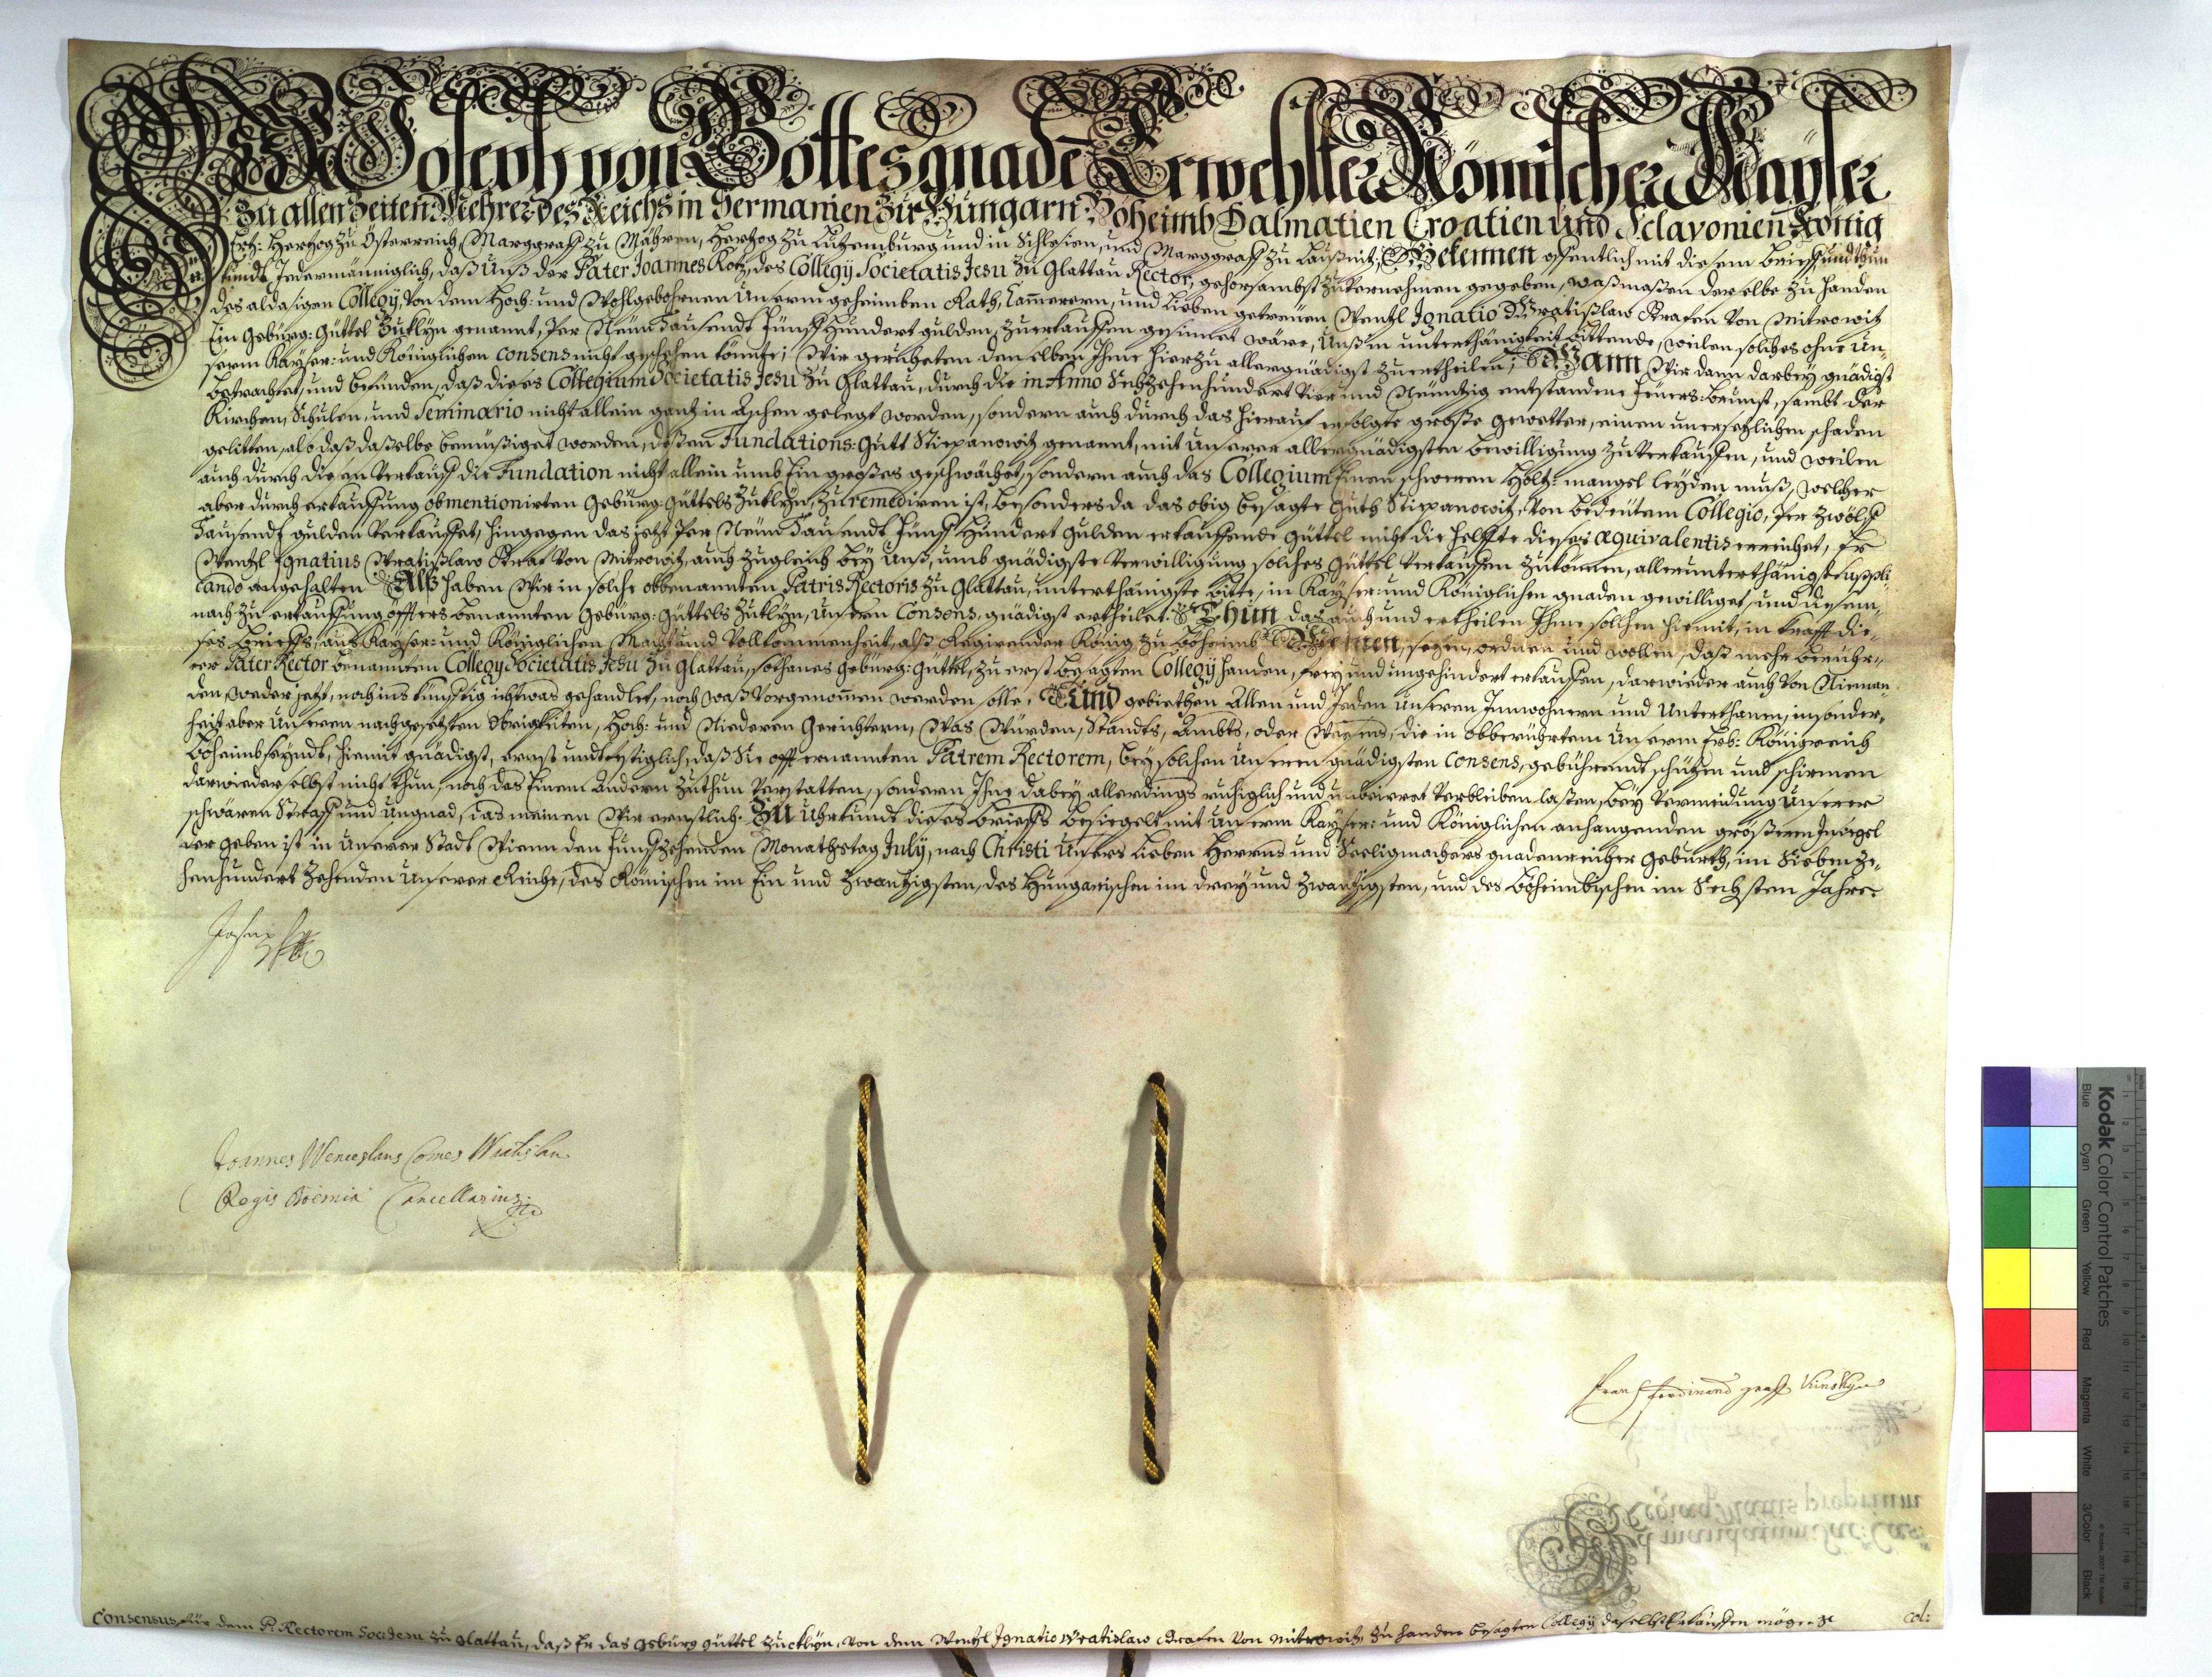 Wir Joseph von Gottes gnadē Erwehlter Römischer Kayser
Zu allen Zeiten Mehrer des Reichs in Germanien Zue Hungarn Böheimb Dalmatien Croatien und Sclavonien König
Ertz: Hertzog zu Österreich, Marggraff zu Mähren, Hertzog zu Lützemburg und in Schlesien, und Marggraff zu Laußnitz, Bekennen offentlich mit diesem Brieff, und thun
kundt Jedermänniglich, daß Unß der Pater Joannes Kotz, des Collegÿ Societatis Jesu zu Glattau Rector, gehorsambst zuvernehmen gegeben, waßmaßen derselbe zu handen
des aldasigen Collegÿ, Von dem Hoch: und Wohlgebohrnen Unserm geheimben Rath, Cammerern, und Lieben getreuen Wentzl Ignatio Wratißlaw Grafen Von Mitrowitz
Ein Gebürg: Güttel Zuklÿn genannt, Per Neün Tausendt Fünff Hundert gulden, zuerkauffen gesinnet wäre, Unß in unterthänigkeit bittende, weilen solches ohne Un-
serm Kayser: und Königlichen consens nicht geschehen könnte; Wir geruheten denselben Ihme hierzu allergnädigst zuertheilen; Wann Wir dann darbeÿ gnädigst
Betrachtet, und befunden, daß dieses Collegium Societatis Jesu zu Glattau, durch die in Anno Sechzehenhundert Vier und Neüntzig entstandene Feüers: Brunst, sambt der
Kirchen, Schulen, und Seminario nicht allein gantz in Aschen gelegt worden, sondern auch durch das hierauf erfolgte große gewetter, einen unersetzlichen schaden
gelitten, also daß daßelbe bemüßiget worden, deßen Fundations: Gutt Stiepanowitz genannt, mit Unserer allergnädigsten bewilligung zu Verkauffen, und weilen
auch durch diesen Verkauff die Fundation nicht allein umb Ein großes geschwächet, sondern auch das Collegium Einen schweren Holtz: mangel leÿden muß, welcher
aber durch erkauffung obmentionirten Gebürg: Güttels Zuklÿn, zu remediren ist, besonders da das obig besagte Guth Stiepanowitz, Von bedeütem Collegio, Per Zwölff
Tausendt gulden Verkauffet, hingegen das jetzt Per Neün Tausendt Fünff Hundert Gulden erkauffende Güttel nicht die helffte dieses æquivalentis erreichet, Er
Wentzl Ignatius Wratißlaw Graf Von Mitrowitz, auch zugleich beÿ Unß, umb gnädigste Verwilligung solches Güttel Verkauffen zukönnen, allerunterthänigst suppli-
cando angehalten Alß haben Wir in solche obbenannten Patris Rectoris zu Glattau, unterthänigste bitte, in Kayser: und Königlichen gnaden gewilliget, und diesem-
nach zu erkauffung öffters benannten Gebürg: Güttels Zuklÿn, Unsern Consens, gnädigst ertheilet. Thun das auch und ertheilen Ihme solchen hiemit, in krafft die-
ses Brieffs, aus Kayser: und Königlichen Macht und Vollkommenheit, alß Regirender König zu Böheimb Meinen, setzen, ordnen und wollen, daß mehr berühr-
ter Pater Rector benannten Collegÿ Societatis Jesu zu Glattau, sothanes Gebürg: Guttel, zu erst besagten Collegÿ handen, freÿ und ungehindert erkauffen, darwieder auch Von Nieman-
den, weder jetzt, noch ins künfftig ichtwas gehandlet, noch waß Vorgenommen werden solle. Und gebiethen Allen und Jeden Unseren Innwohnern und Unterthanen, insonder-
heit aber Unseren nachgesetzten Obrigkeiten, Hoch: und Niederen Gerichtern, Was Würden, Standts, Ambts, oder Wesens, die in obberührtem Unserm Erb: Königreich
Böheimb seÿndt, hiemit gnädigst, ernst und vestiglich, daß Sie offternannten Patrem Rectorem, beÿ solchen Unseren gnädigsten Consens, gebührendt schützen und schirmen
darwieder selbst nicht thun, noch das Einem Andern zuthun Verstatten, sondern Ihne dabeÿ allerdings ruhiglich und unbeirret Verbleiben laßen, beÿ Vermeidung Unserer
schwären Straff und Ungnad, das meinen Wir ernstlich. Zu Uhrkundt dieses Brieffs besiegelt mit Unserm Kayser: und Königlichen anhangenden größeren Insiegel
der geben ist in Unserer Stadt Wienn den Fünffzehenden Monathstag Julÿ, nach Christi Unsers Lieben Herrns und Seeligmachers gnadenreicher Geburth, im Siebenze-
henhundert Zehenden Unserer Reiche, des Römischen im Ein und Zwantzigsten, des Hungarischen im dreÿ und Zwantzigsten, und des Böheimbischen im Sechsten Jahre.
Joseph
Joannes Wenceslaus Comes Wratislau
Regis Boemiæ Cancellarius
Frantz Ferdinand graff Kinskÿ
Consensus für dem P. Rectorem Soc: Jesu zu Glattau, daß Er das gebürg güttel Zucklÿn, Von dem Wentzl Ignatio Wratislaw Grafen Von Mitrowitz, zu handen besagten Collegÿ daselbst Erkauffen möge
Col: